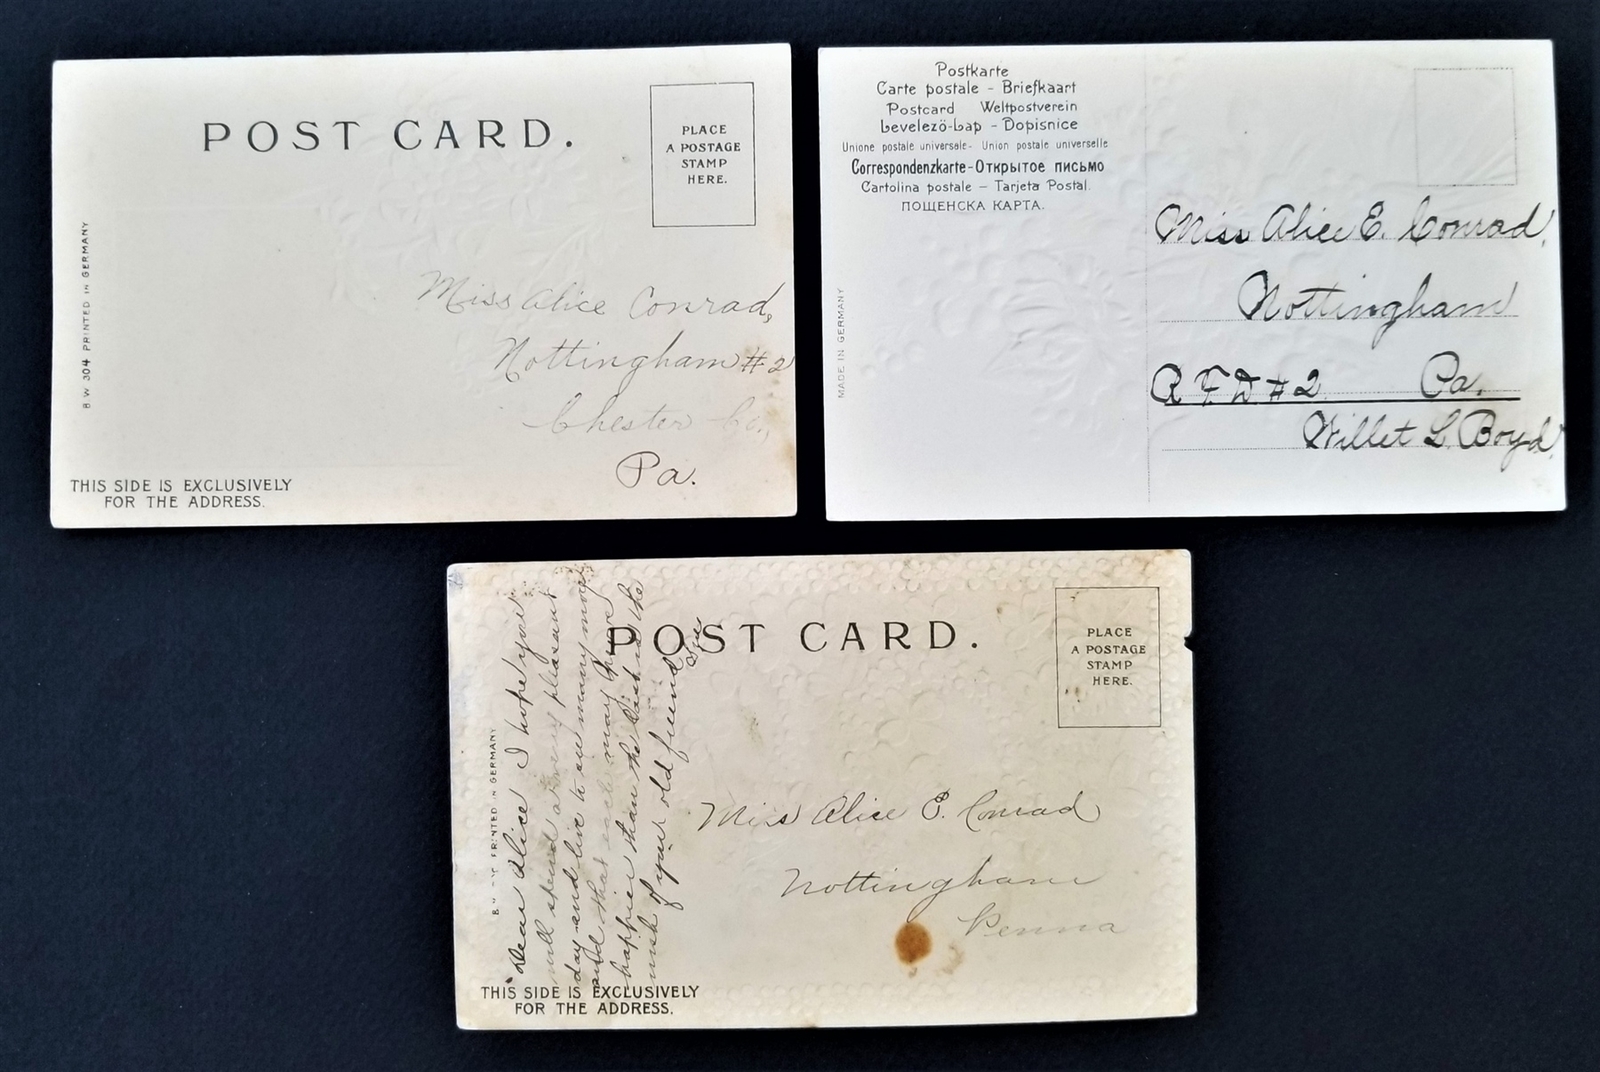 POST CARD.
PLACE
A POSTAGE
STAMP
HERE.
B W 304 PRINTED IN GERMANY
Miss Alice Conrad,
Nottingham #2
Chester Co.,
Pa.
THIS SIDE IS EXCLUSIVELY
FOR THE ADDRESS.
Postkarte
Carte postale - Briefkaart
Postcard Weltpostverein
Levelező-Lap - Dopisnice
Unione postale universale - Union postale universelle
Correspondenzkarte - Открытое письмо
Cartolina postale - Tarjeta Postal.
ПОЩЕНСКА КАРТА.
MADE IN GERMANY
Miss Alice E. Conrad,
Nottingham
R F D #2 Pa.
Willet L. Boyd.
POST CARD.
PLACE
A POSTAGE
STAMP
HERE.
PRINTED IN GERMANY
Dear Alice I hope you
will spend a very pleasant
day and live to see many more
and that each may prove
happier than the last is the
wish of your old friend
Miss Alice E. Conrad
Nottingham
Penna
THIS SIDE IS EXCLUSIVELY
FOR THE ADDRESS.